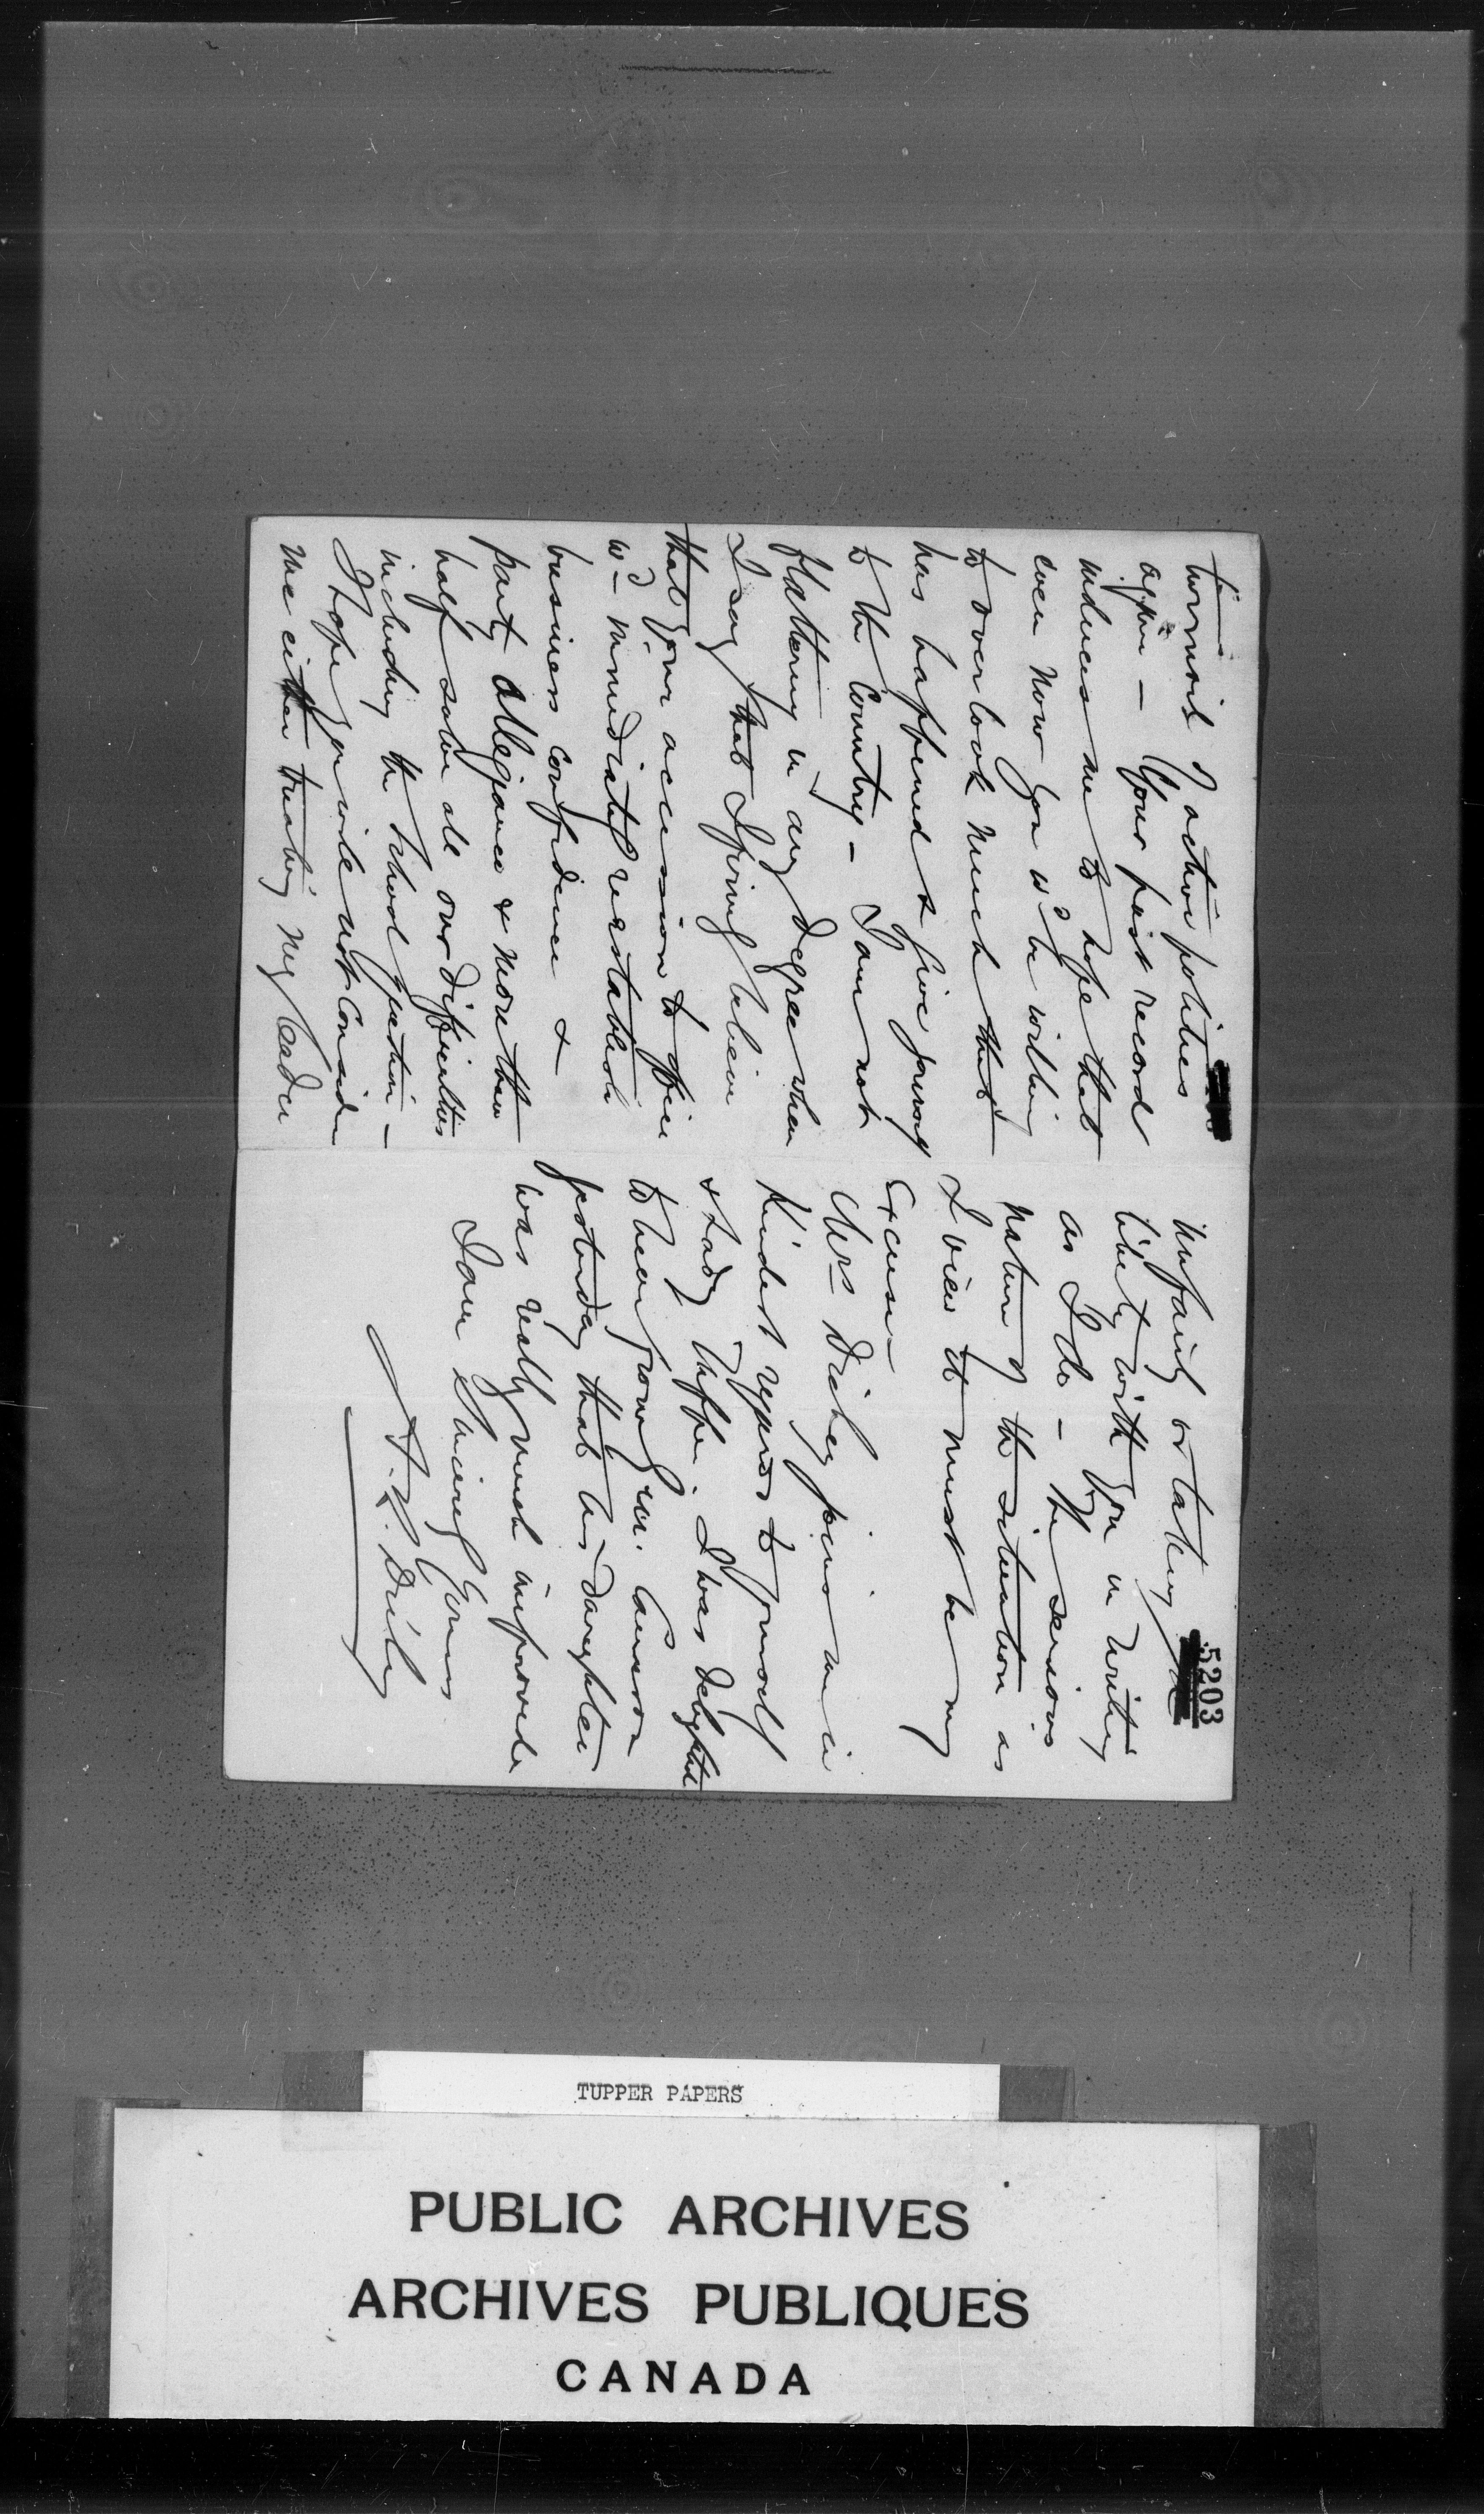 turmoil of active politics
again — Your past record
induces me to hope that
even now you wd be willing
to overlook much that
has happened & give yourself
to the Country — I am not
flattering in any degree when
I say that I firmly believe
that your accession to office
wd immediately reestablish
business confidence &
party allegiance & more than
half solve all our difficulties
including the School question —
I hope you will not consider
me either treating my leader
5203
unfairly or taking a
liberty with you in writing
as I do — The serious
nature of the situation as
I view it must be my
excuse —
Mrs Dickey joins me in
kindest regards to yourself
& Lady Tupper. I was delighted
to hear from Cameron
yesterday that his daughter
was really much improved
I am Sincerely Yours
A. R. Dickey
TUPPER PAPERS
PUBLIC ARCHIVES
ARCHIVES PUBLIQUES
CANADA